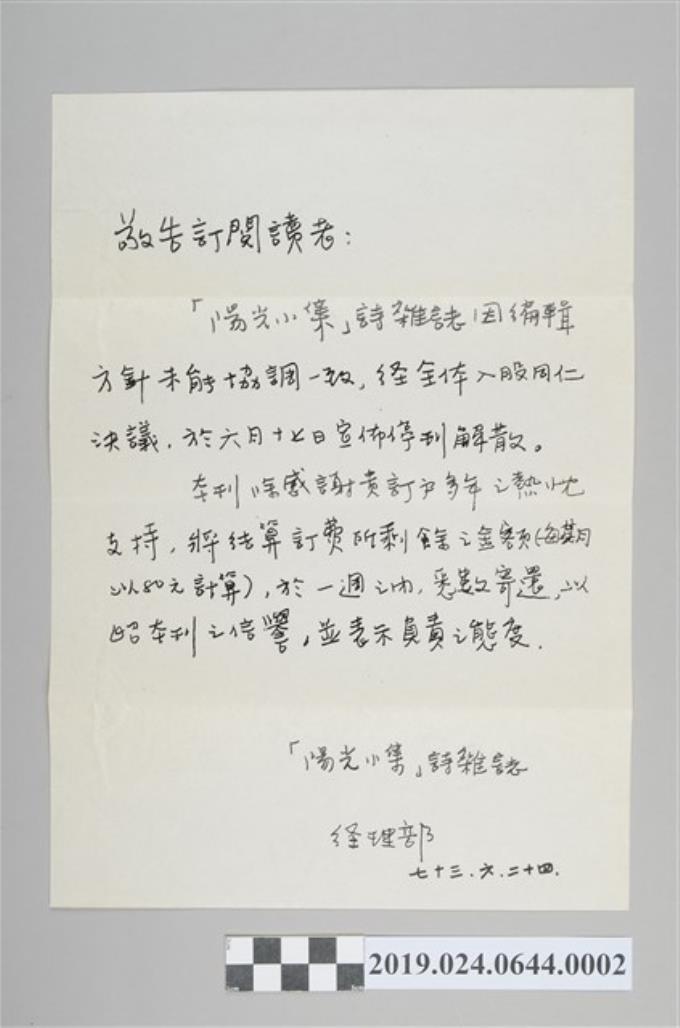 敬告訂閱讀者：
「陽光小集」詩雜誌因編輯
方針未能協調一致，経全体入股同仁
決議，於六月十七日宣佈停刊解散。
本刊除感謝貴訂戶多年之熱忱
支持，將結算訂費所剩餘之金額(每期
以80元計算)，於一週之內，悉數寄還，以
昭本刊之信譽，並表示負責之態度.
「陽光小集」詩雜誌
経理部
七十三.六.二十四.
2019.024.0644.0002